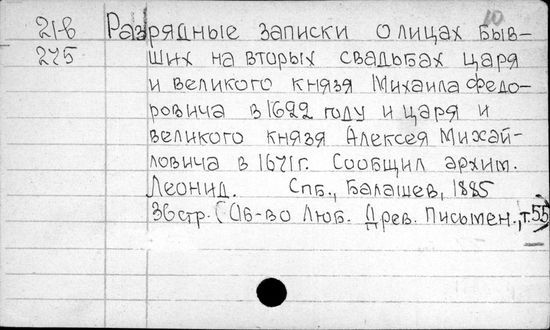 10
21-в Разрядные записки о лицах быв-
275 ших на вторых свадьбах царя
и великого князя Михаила Федо-
ровича в 1622 году и царя и
великого князя Алексея Михай-
ловича в 1671г. Сообщил архим.
Леонид. Спб., Балашев, 1885
36стр. (Об-во Люб. Древ. Письмен., т.55)